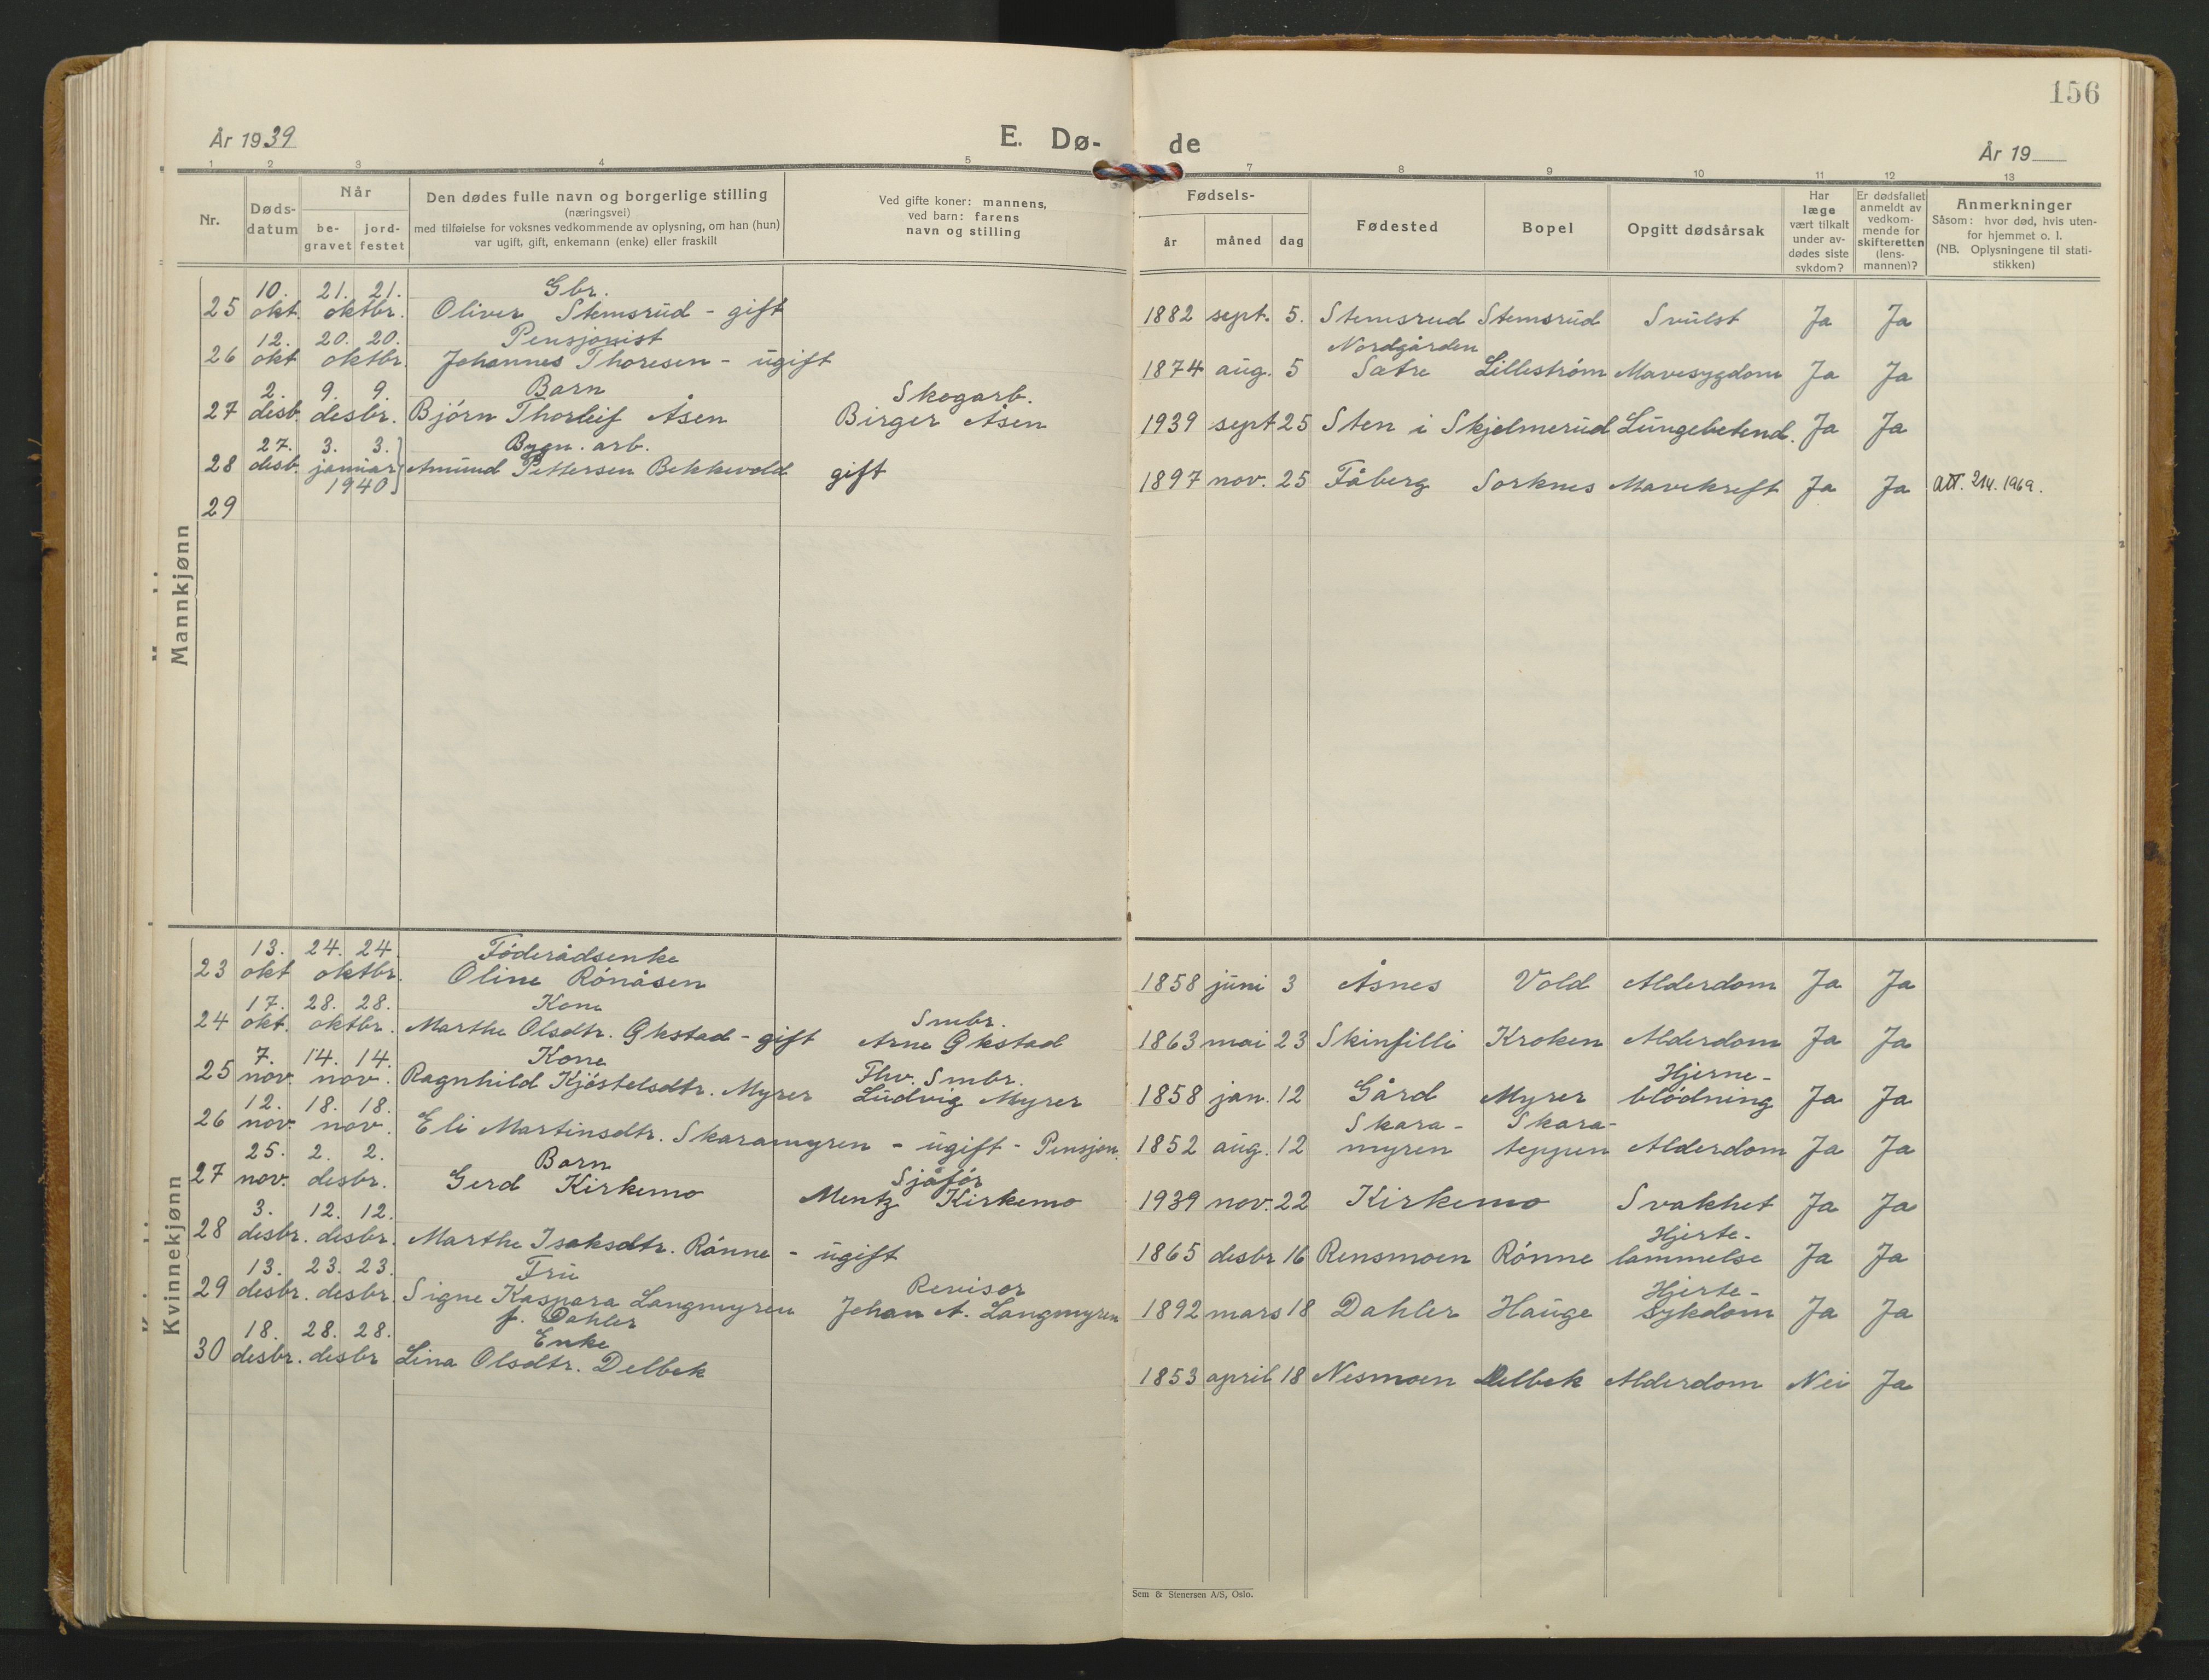 156
År 1939
E. Dø-
de
År 19
1 2 3 4 5 7 8 9 10 11 12 13
Nr.
Døds-
datum
Når
be-
gravet
jord-
festet
Den dødes fulle navn og borgerlige stilling
(næringsvei)
med tilføielse for voksnes vedkommende av oplysning, om han (hun)
var ugift, gift, enkemann (enke) eller fraskilt
Ved gifte koner: mannens,
ved barn: farens
navn og stilling
Fødsels-
år måned dag
Fødested
Bopel
Opgitt dødsårsak
Har
læge
vært tilkalt
under av-
dødes siste
sykdom?
Er dødsfallet
anmeldt av
vedkom-
mende for
skifteretten
(lens-
mannen)?
Anmerkninger
Såsom: hvor død, hvis uten-
for hjemmet o. l.
(NB. Oplysningene til stati-
stikken)
Mannkjønn
10. 21. 21. Gbr.
25 okt. oktbr. Oliver Stemsrud - gift 1882 sept. 5. Stemsrud Stemsrud Svulst Ja Ja
12. 20. 20. Pensjonist Nordgården
26 okt oktbr. Johannes Thoresen - ugift 1874 aug. 5 Sætre Lillestrøm Mavesygdom Ja Ja
2. 9. 9. Barn Skogarb.
27 desb. desbr. Bjørn Thorleif Åsen Birger Åsen 1939 sept 25 Sten i Skjelmerud Lungebetend. Ja Ja
27. 3. 3. Bygn. arb.
28 desb. januar Amund Pettersen Bekkevold gift 1897 nov. 25 Fåberg Sorknes Mavekreft Ja Ja Att. 21/4. 1969.
1940
29
Kvinnekjønn
13. 24. 24. Föderådsenke
23 okt oktbr. Oline Rönåsen 1858 juni 3 Åsnes Vold Alderdom Ja Ja
17. 28. 28. Kone Smbr.
24 okt. oktbr. Marthe Olsdtr. Gkstad - gift Arne Gkstad 1863 mai 23 Skinfilli Kroken Alderdom Ja Ja
7. 14. 14. Kone Fhv. Smbr. Hjerne-
25 nov. nov. Ragnhild Kjöstelsdtr. Myrer Ludvig Myrer 1858 jan. 12 Gård Myrer blödning Ja Ja
12. 18. 18. Skara- Skara-
26 nov. nov. Eli Martinsdtr. Skaramyren - ugift - Pensjon. 1852 aug. 12 myren teppen Alderdom Ja Ja
25. 2. 2. Barn Sjåför
27 nov. desbr. Gerd Kirkemo Mentz Kirkemo 1939 nov. 22 Kirkemo Svakhet Ja Ja
3. 12. 12. Hjerte-
28 desbr. desbr. Marthe Isaksdtr. Rönne - ugift 1865 desbr 16 Rensmoen Rönne lammelse Ja Ja
13. 23. 23. Fru Revisor Hjerte-
29 desbr. desbr. Signe Kaspara Langmyren Johan A. Langmyren 1892 mars 18 Dahler Hauge Sykdom Ja Ja
f. Dahler
18. 28. 28. Enke
30 desbr. desbr Lina Olsdtr. Delbek 1853 april 18 Nesmoen Delbek Alderdom Nei Ja
Sem & Stenersen A/S, Oslo.